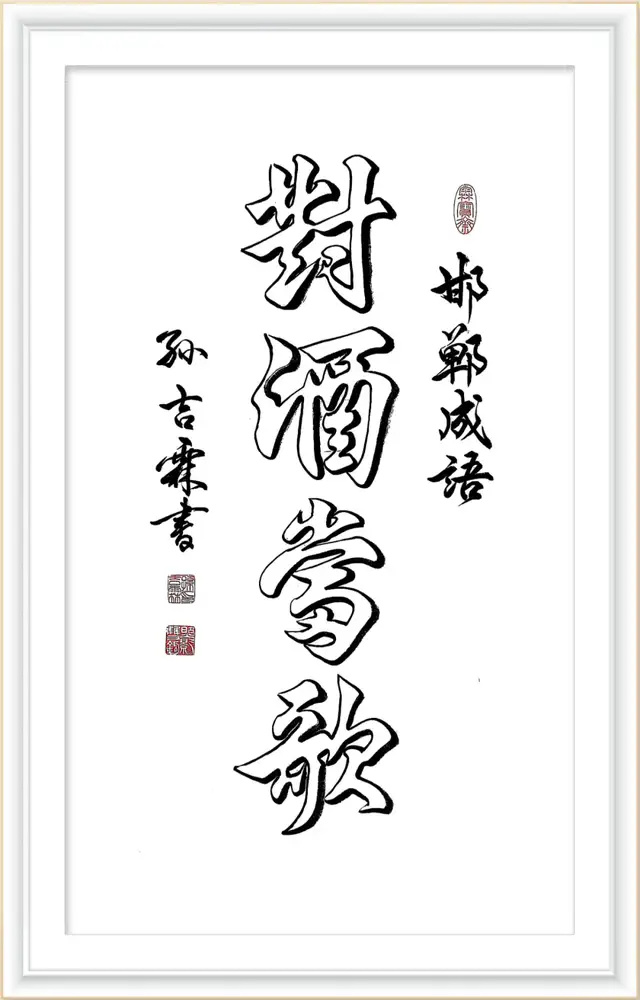 邯鄲成語
對酒當歌
孙吉霖書